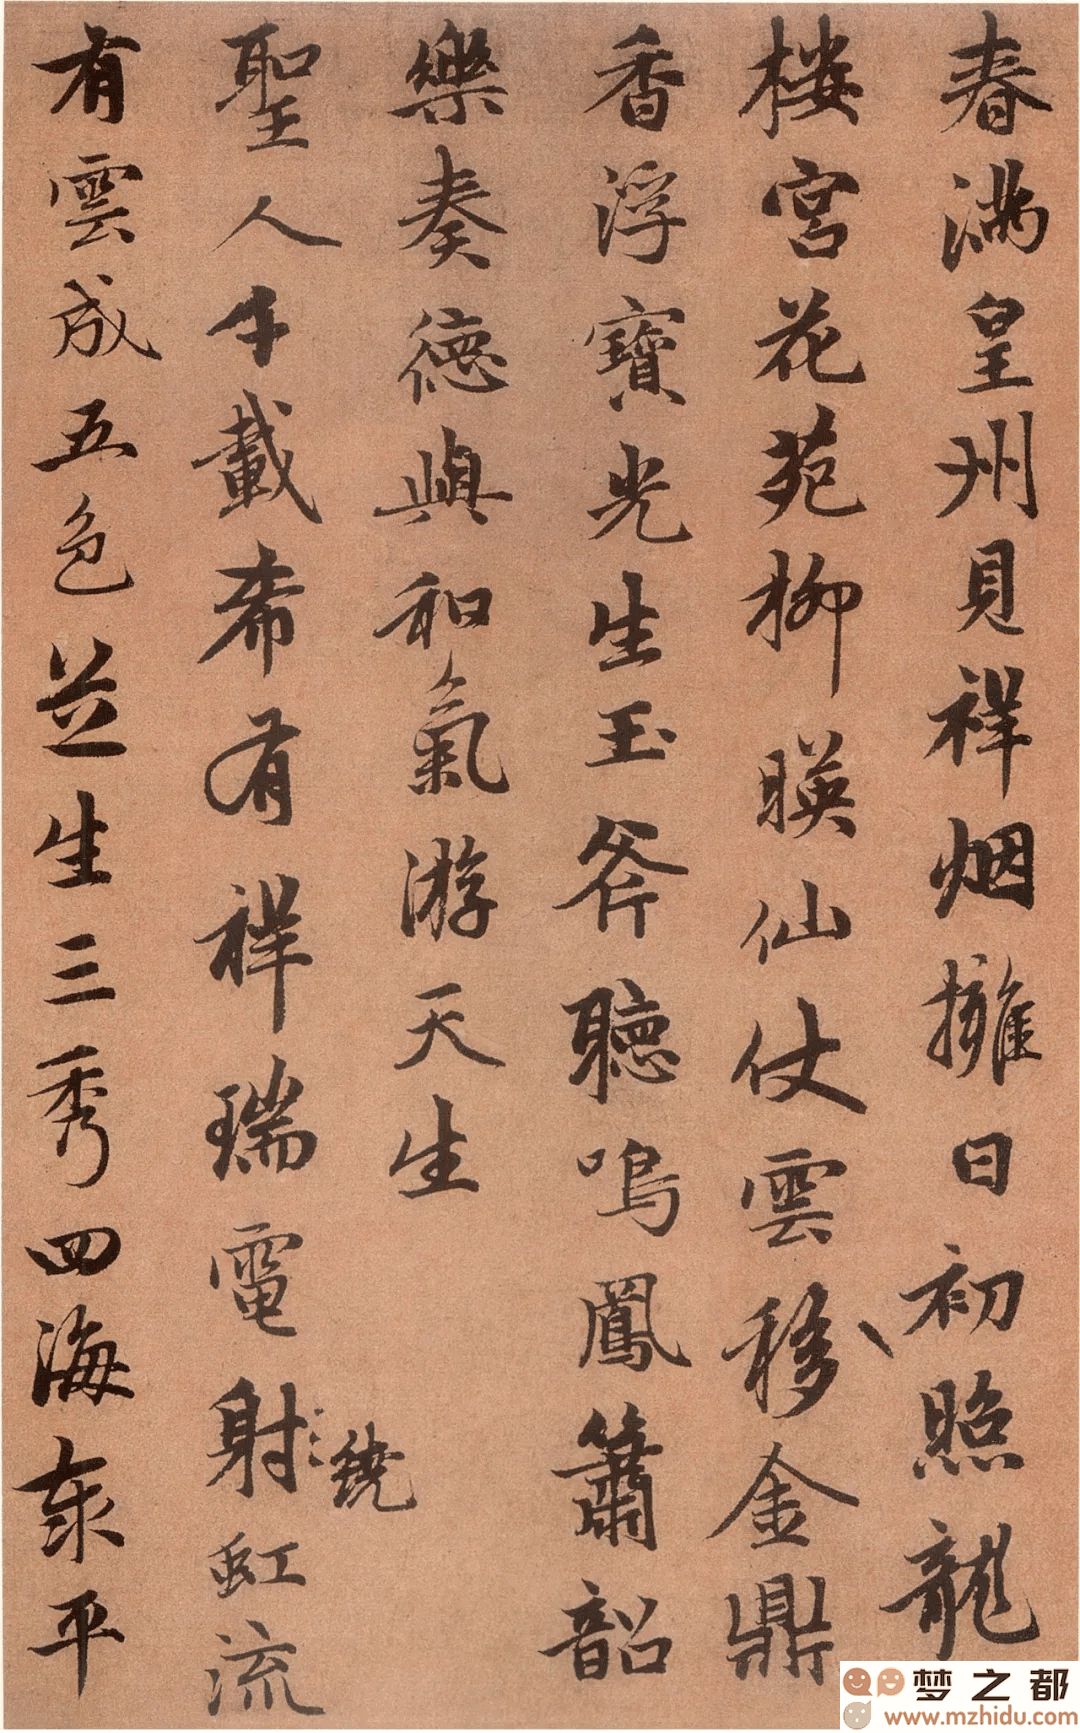 春满皇州見祥烟擁日初照龍
楼宮花苑柳暎仙仗雲移金鼎
香浮寶光生玉斧聽鳴鳳簫韶
樂奏德與和氣游天生
聖人千載希有祥瑞電射虹流
繞
有雲成五色芝生三秀四海泰平
梦之都
www.mzhidu.com